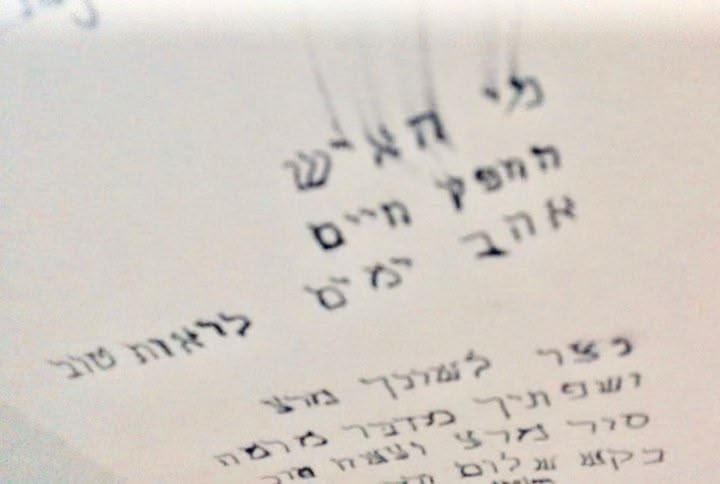 מי האיש
החפץ חיים
אהב ימים לראות טוב
נצר לשונך מרע
ושפתיך מדבר מרמה
סור מרע ועשה טוב
בקש שלום